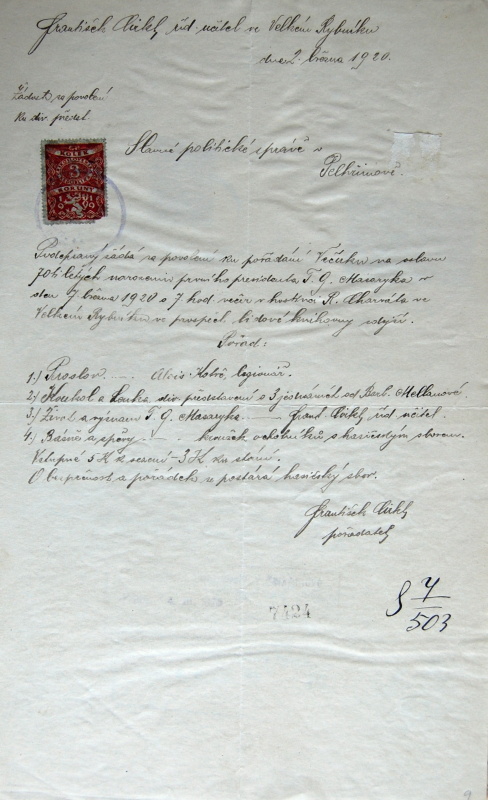 František Cickl, říd. učitel ve Velkém Rybníku
dne 2. března 1920.
Žádost za povolení
ku div. předst.
KOLEK
3
KORUNY
Slavné politické správě v
Pelhřimově.
Podepsaný žádá za povolení ku pořádání Večírku na oslavu
70ti letých narozenin prvního presidenta T. G. Masaryka v
den 7. března 1920 o 7 hod. večer v hostinci R. Charváta ve
Velkém Rybníku ve prospěch lidové knihovny zdejší.
Pořad:
1.) Proslov Alois Kotrč, legionář.
2.) Koukol a Louka div. představení o 3 jednáních od Barb. Mellanové
3.) Život a význam T. G. Masaryka Frant. Cickl, říd. učitel.
4.) Básně a zpěvy kroužek ochotníků s hasičským sborem.
Vstupné 5 K k sezení – 3 K ku stání.
O bezpečnost a pořádek se postará hasičský sbor.
František Cickl,
pořadatel
7424
§ 7/503
9